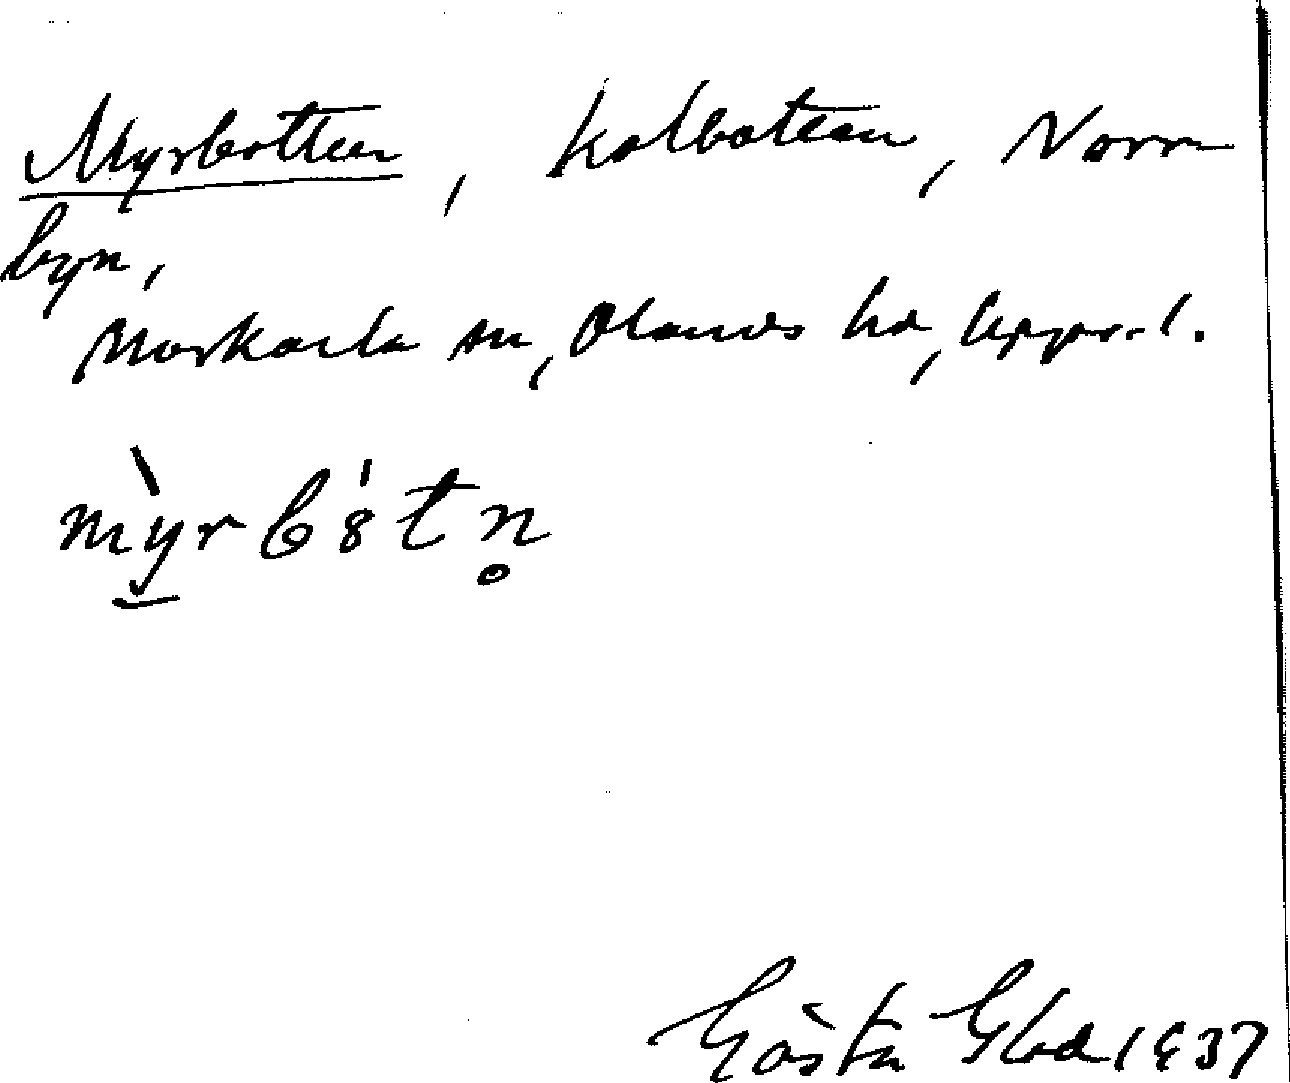 Myrbotten, kolbotten, Norr-
byn,
Morkarla sn, Olands hd, Uppl.
mỳrb8́tn̥
Gösta Eld 1937